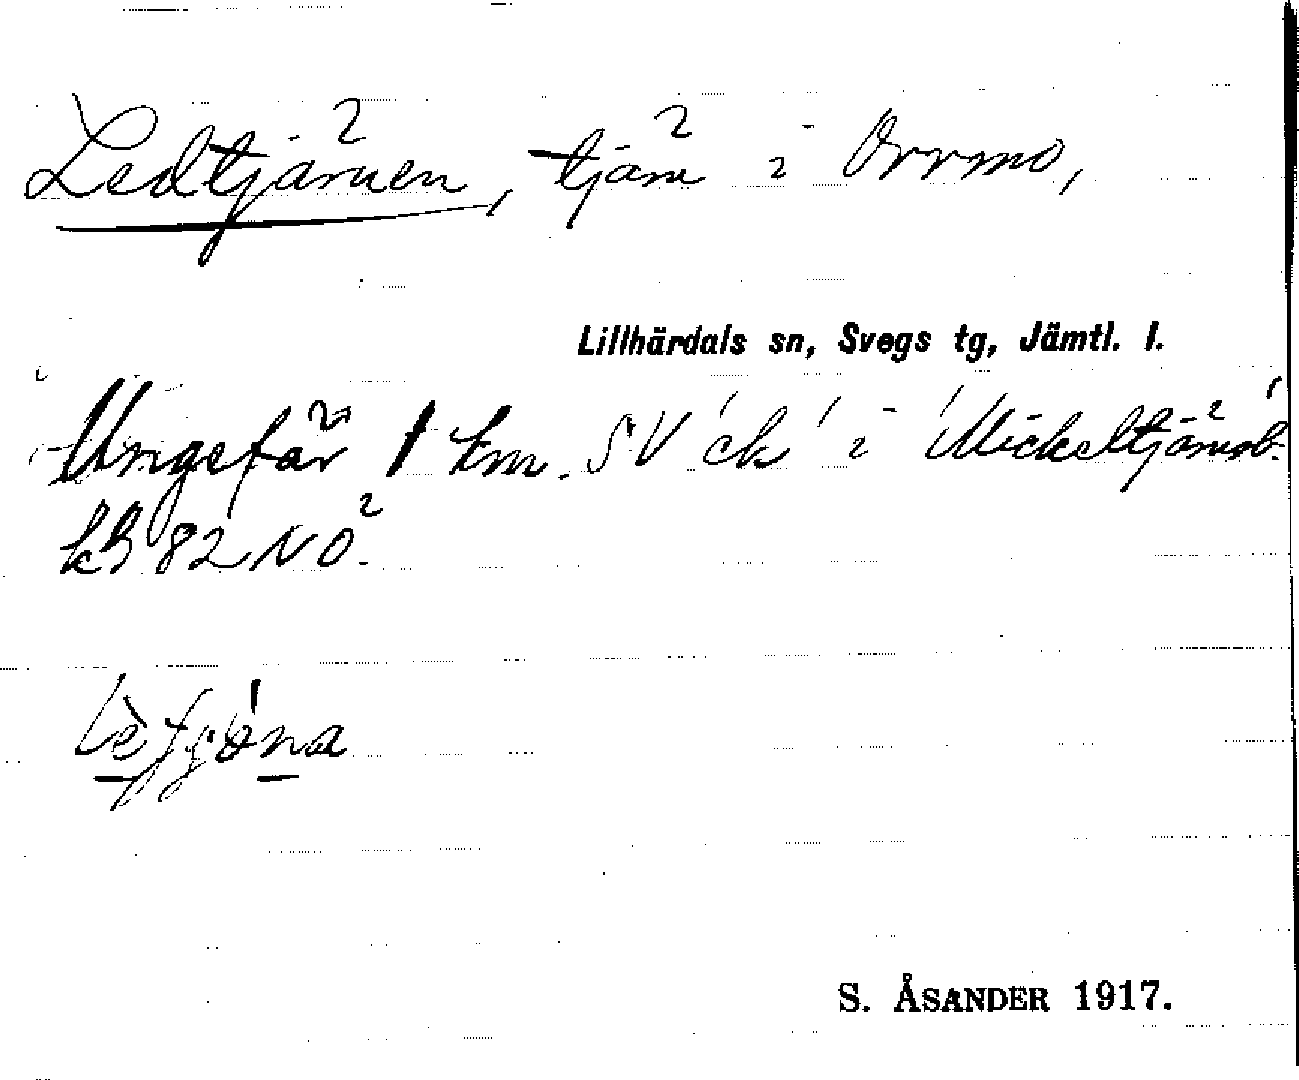 Ledtjärnen, tjärn i Orrmo,
Lillhärdals sn, Svegs tg, Jämtl. l.
Ungefär 1 km. SV 'ck' i 'Mickeltjärnsb.'
kB 82 NO.
S. ÅSANDER 1917.